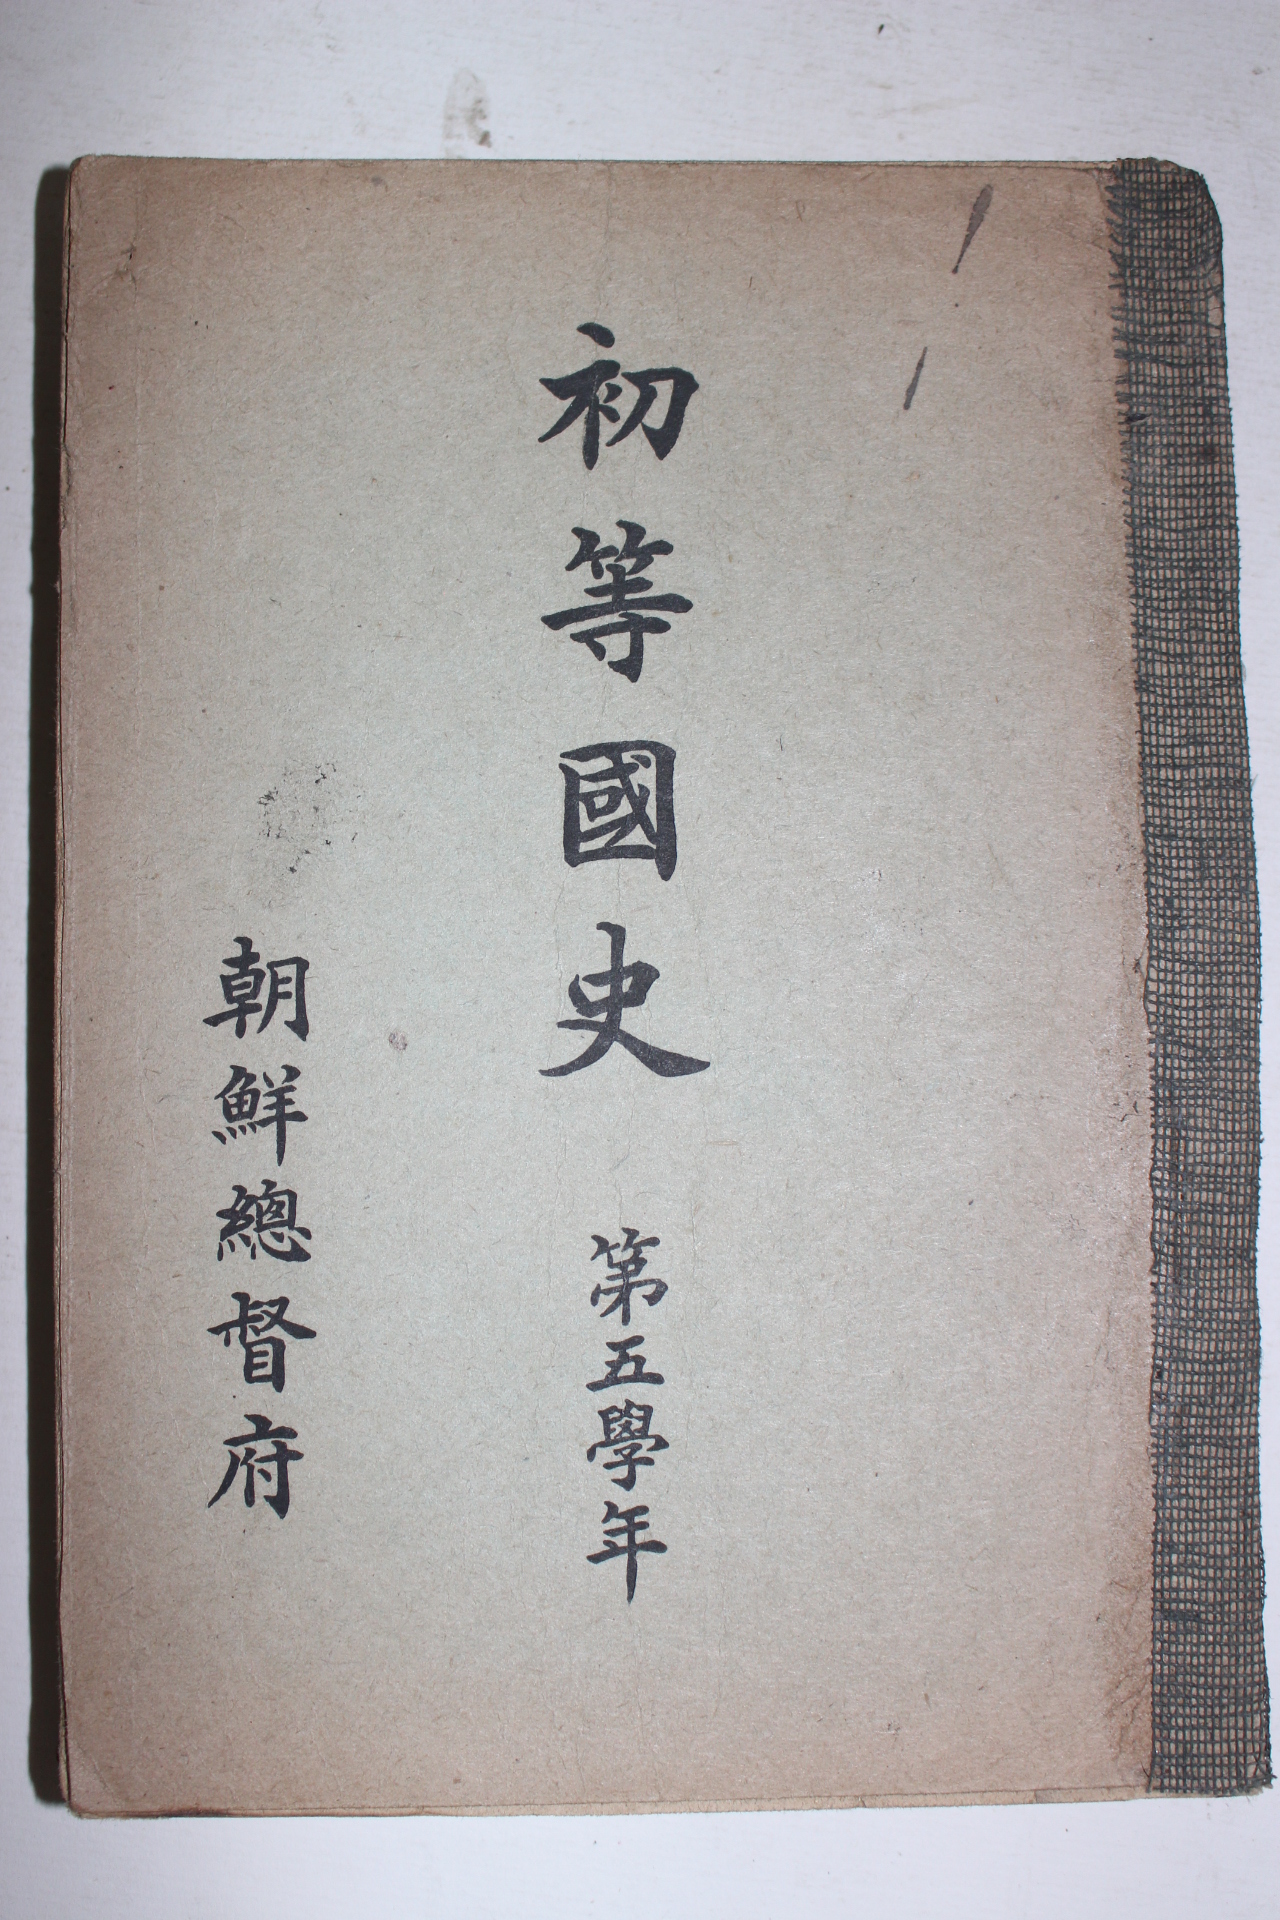 初等國史 第五學年
朝鮮總督府